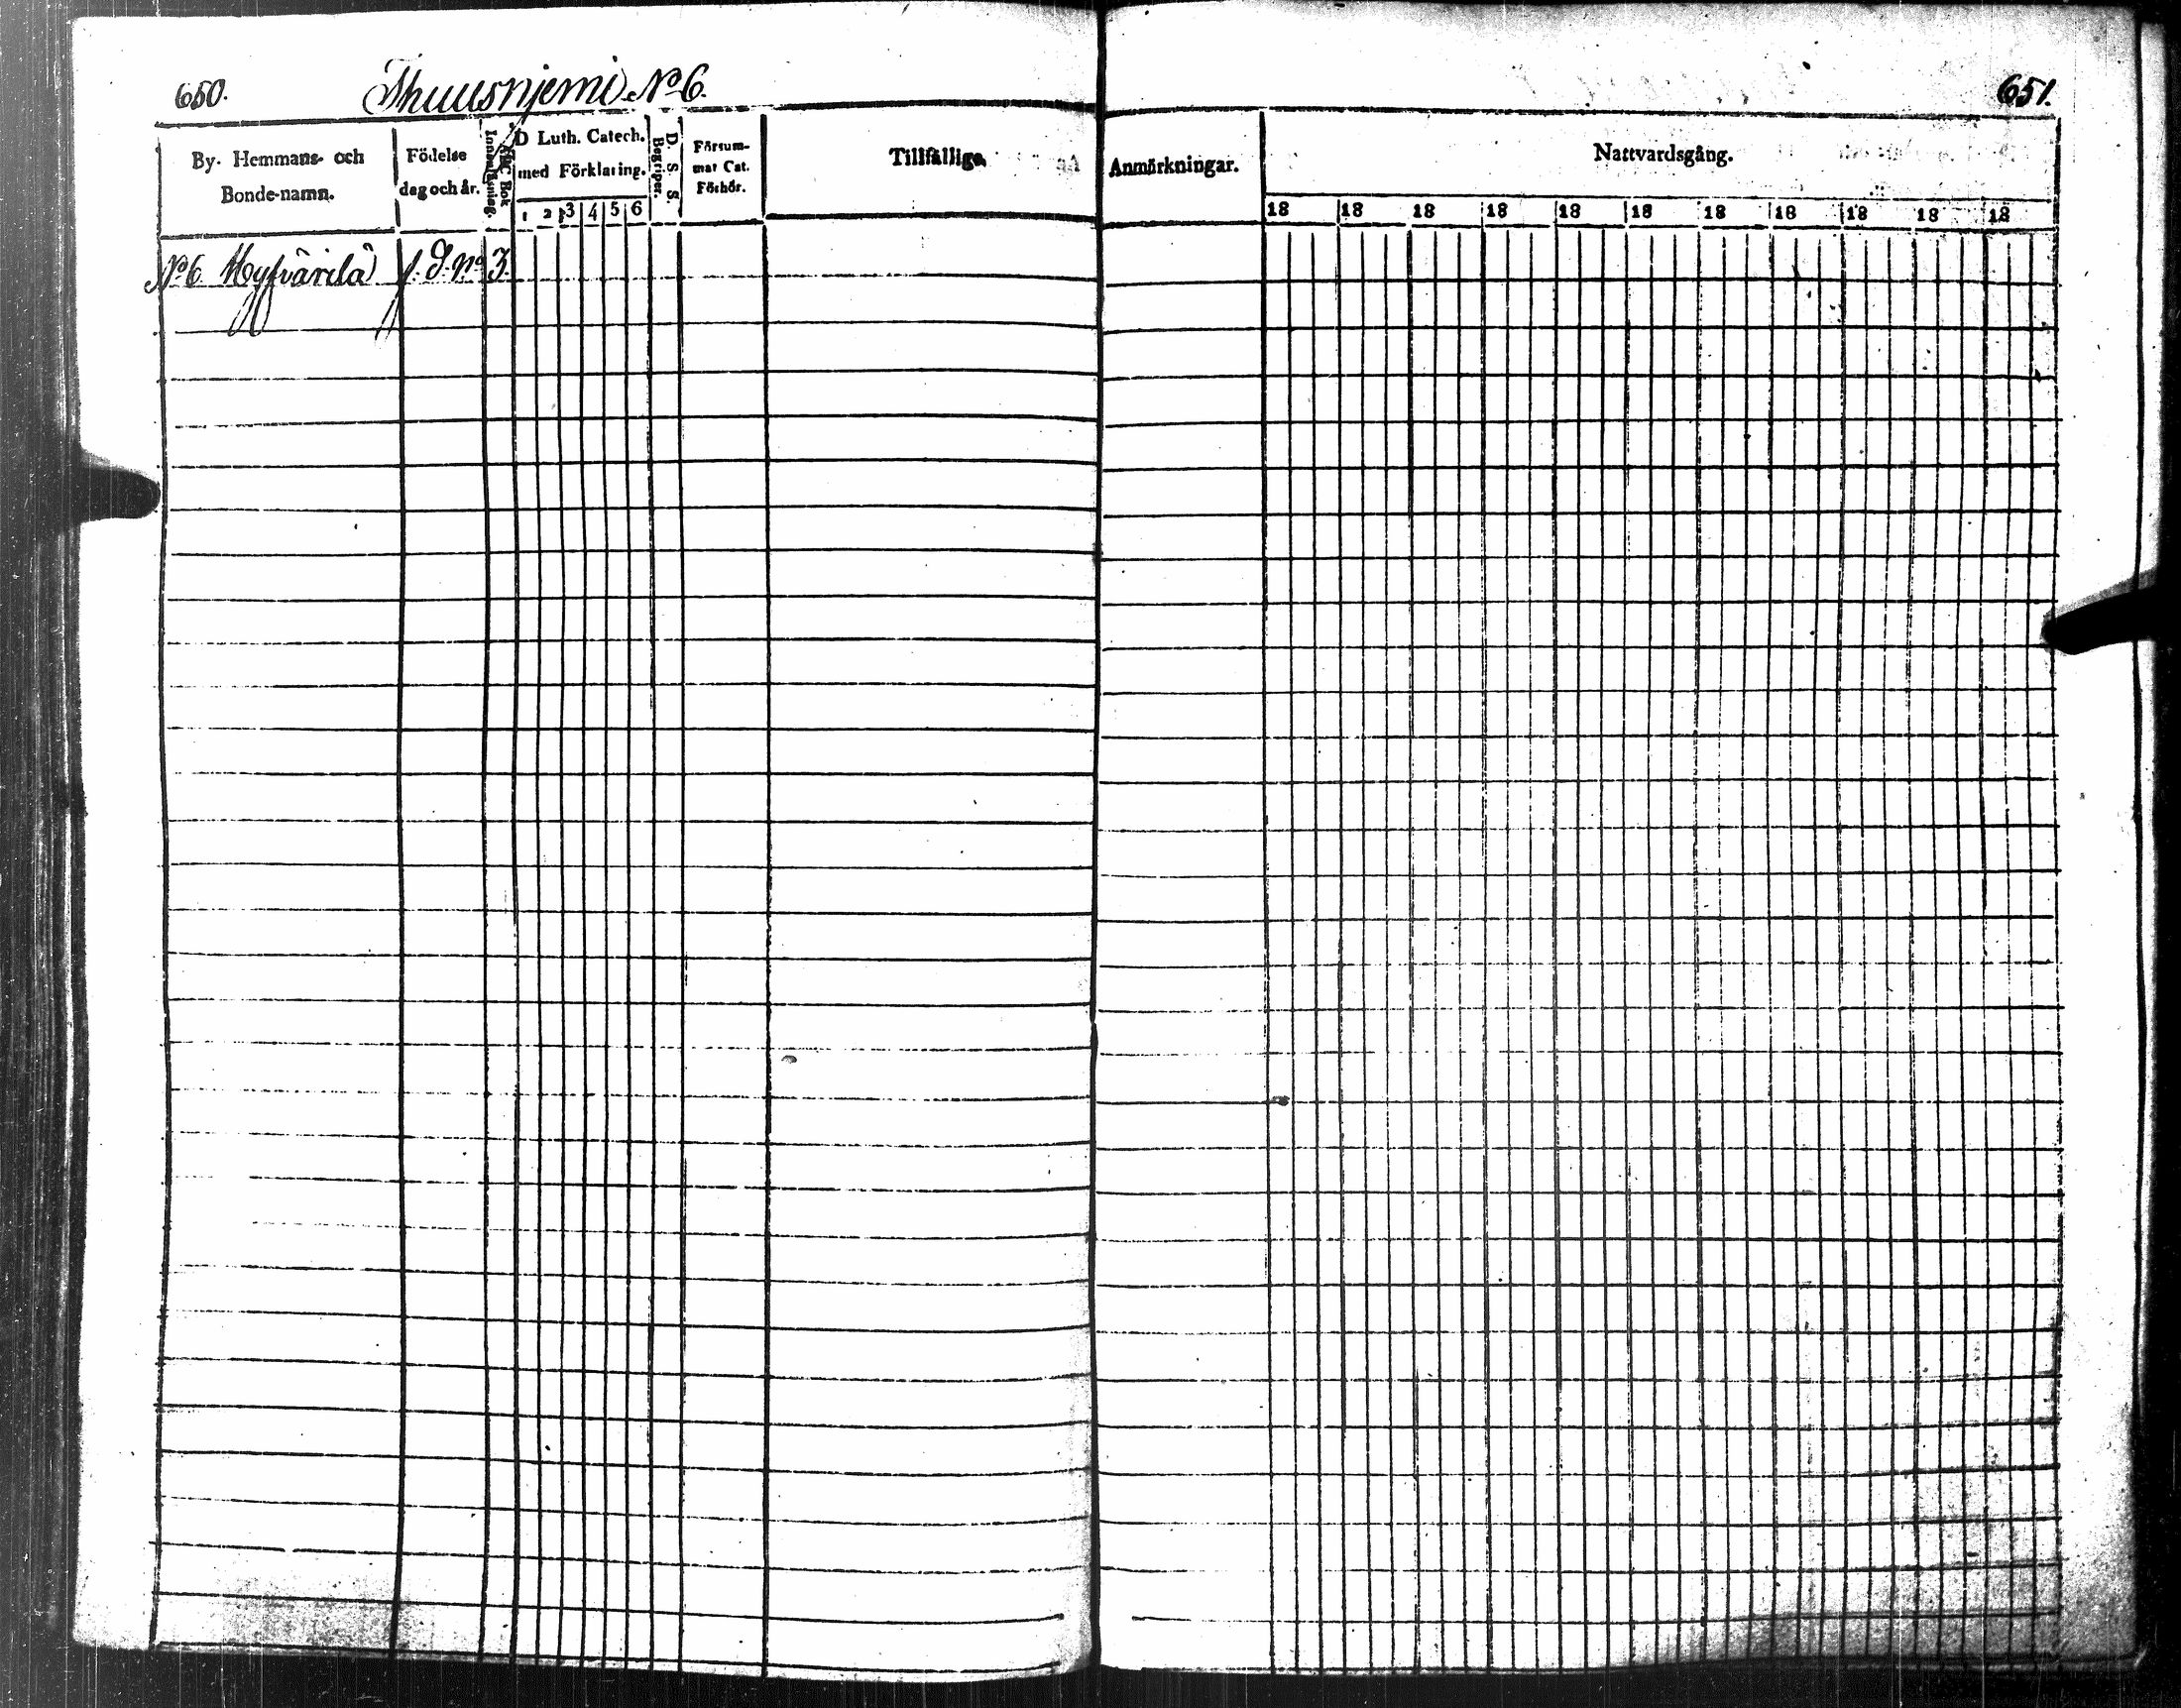 650.
Thuusnjemi No 6.
By- Hemmans- och
Bonde-namn.
Födelse
dag och år.
ABC Bok
Innanläsning.
D Luth. Catech.
med Förklaring.
1 2 3 4 5 6
D. S. S.
Begriper.
Försum-
mat Cat.
Förhör.
Tillfällige
No 6 Hyfvärilä f. S. No 3.
651.
Anmärkningar.
Nattvardsgång.
18 18 18 18 18 18 18 18 18 18 18